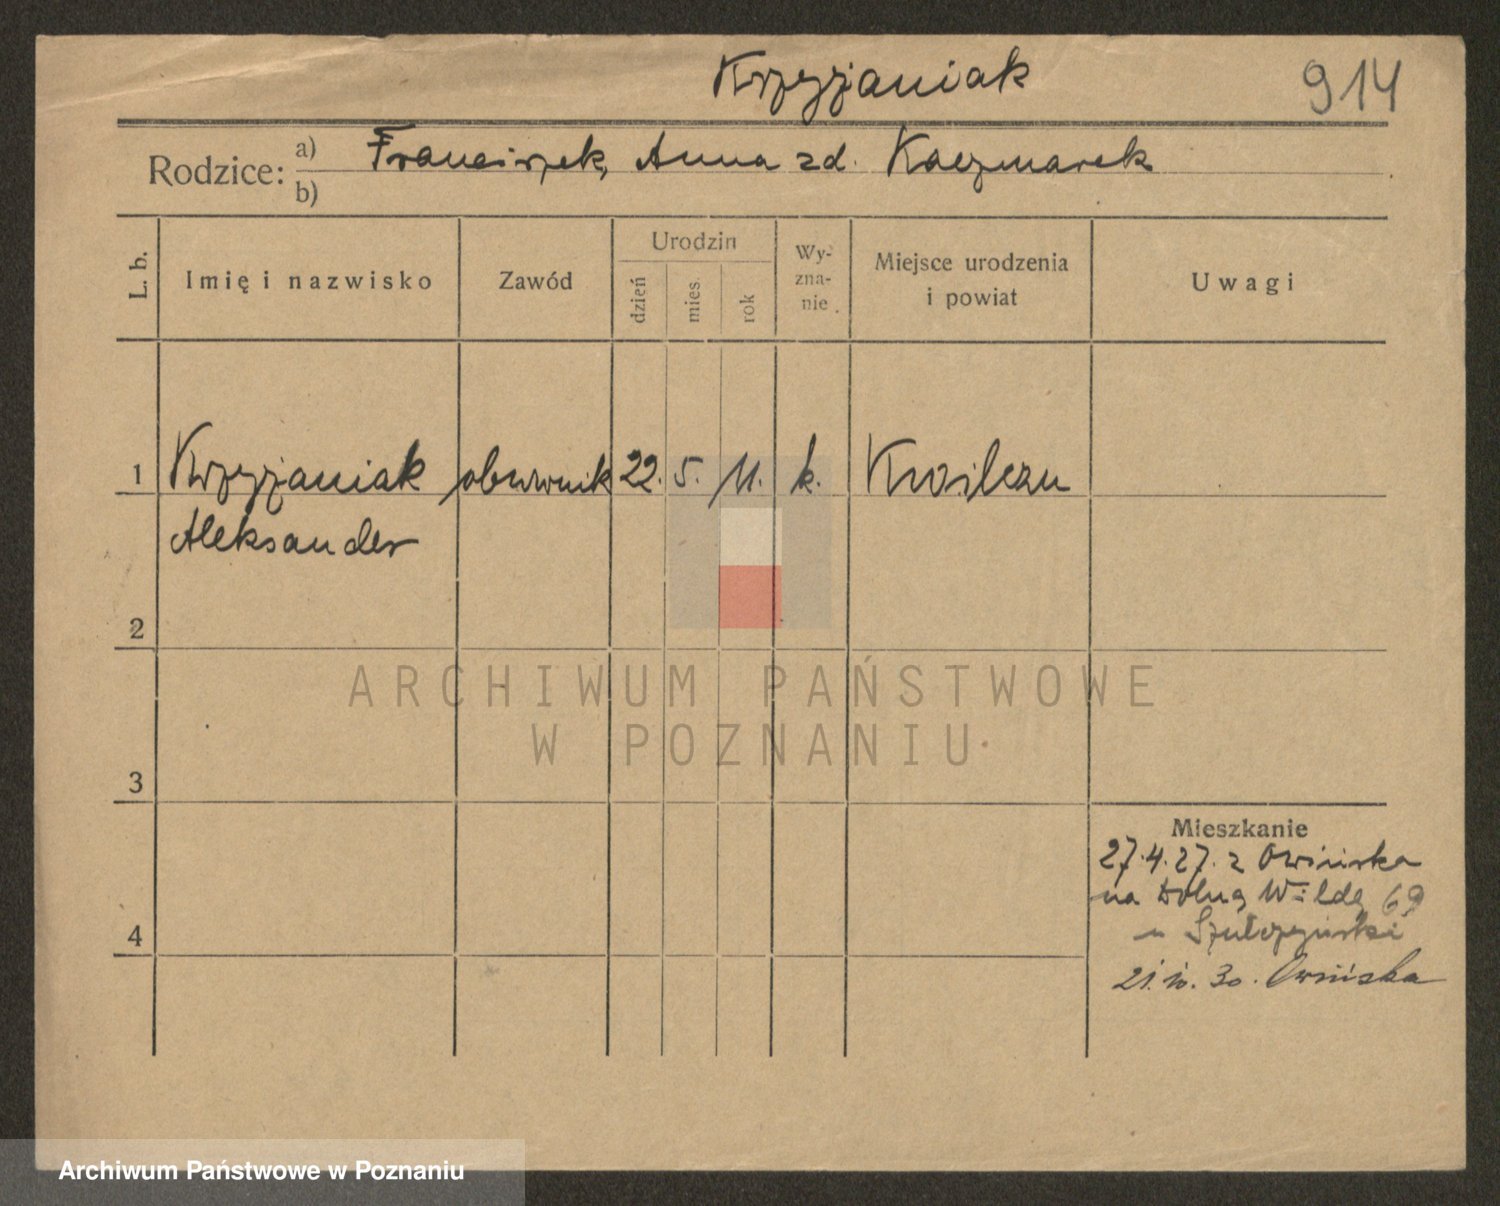 Krzyżaniak
914
Rodzice: a) Franciszek, Anna zd. Kaczmarek
b)
L. b.
Imię i nazwisko
Zawód
Urodzin
dzień
mies.
rok
Wy-
zna-
nie
Miejsce urodzenia
i powiat
Uwagi
1 Krzyżaniak obuwnik 22. 5. 11. k.
Aleksander
2
3
4
Mieszkanie
27.4.27. z Owińska
na Dolną Wildę 69
u Szulczyński
30. Owińska
ARCHIWUM PAŃSTWOWE
W POZNANIU
Archiwum Państwowe w Poznaniu